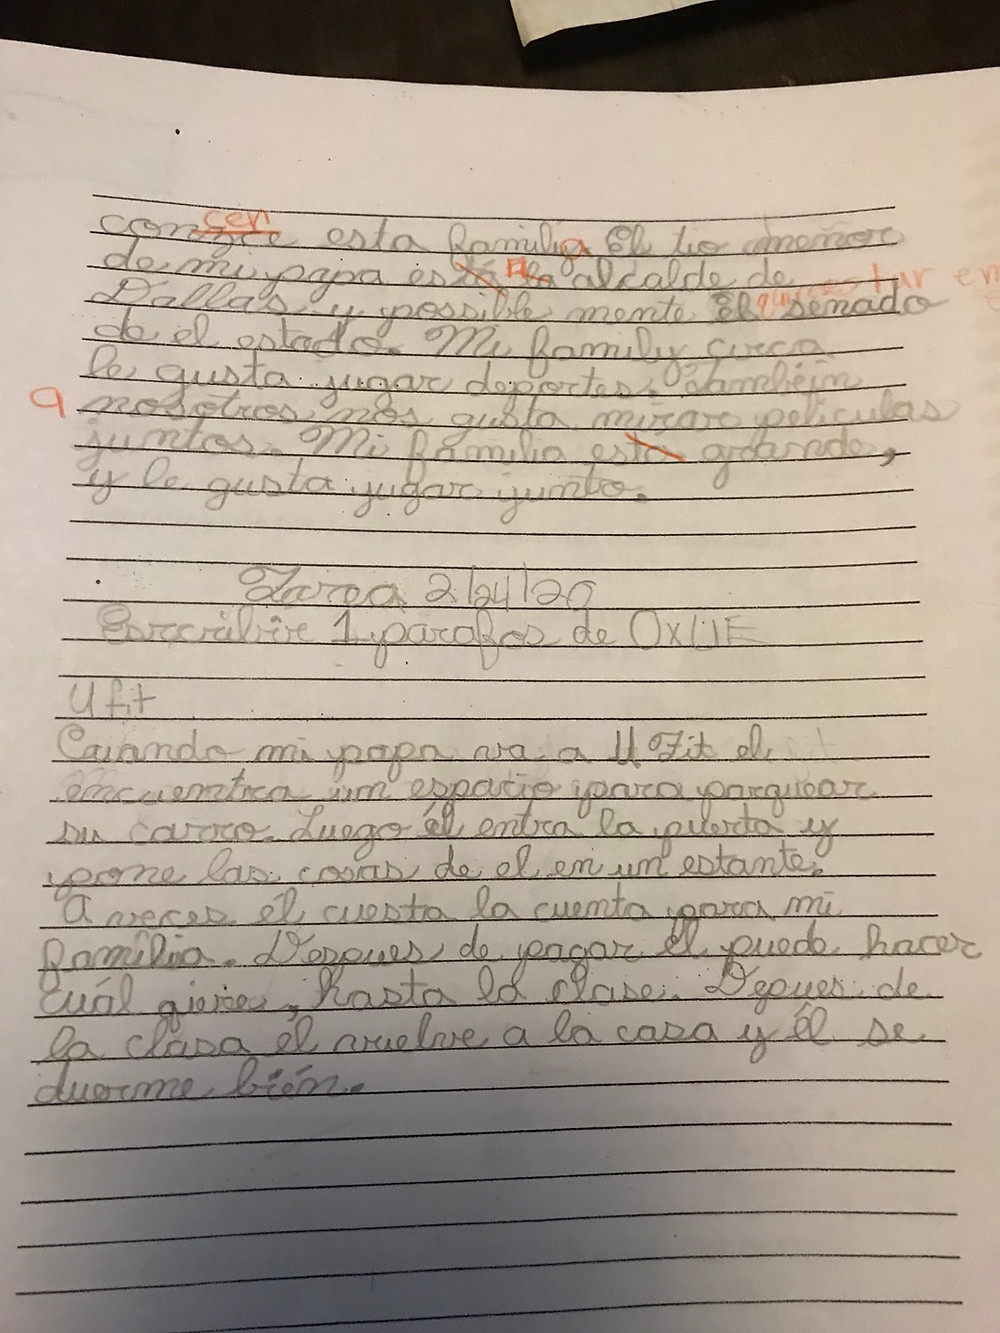 cer
esta familia El tio menor
de mi papa es la alcalde de
estar en
Dallas, y possible mente el senado
de el estado. Mi family cerca
le gusta jugar deportes. También
a nosotros nos gusta mirar peliculas
juntos. Mi familia está grande,
y le gusta jugar junto.
Tarea 2/24/20
1 parafos de O x UE
U fit
Cuando mi papa va a U Fit el
encuentra un espacio para parquear
su carro. Luego él entra la puerta y
pone las cosas de el en un estante.
A veces él cuesta la cuenta para mi
familia. Despues de pagar él puede hacer
cuál qiere, hasta la clase. Depues de
la clasa él vuelve a la casa y él se
duerme bién.